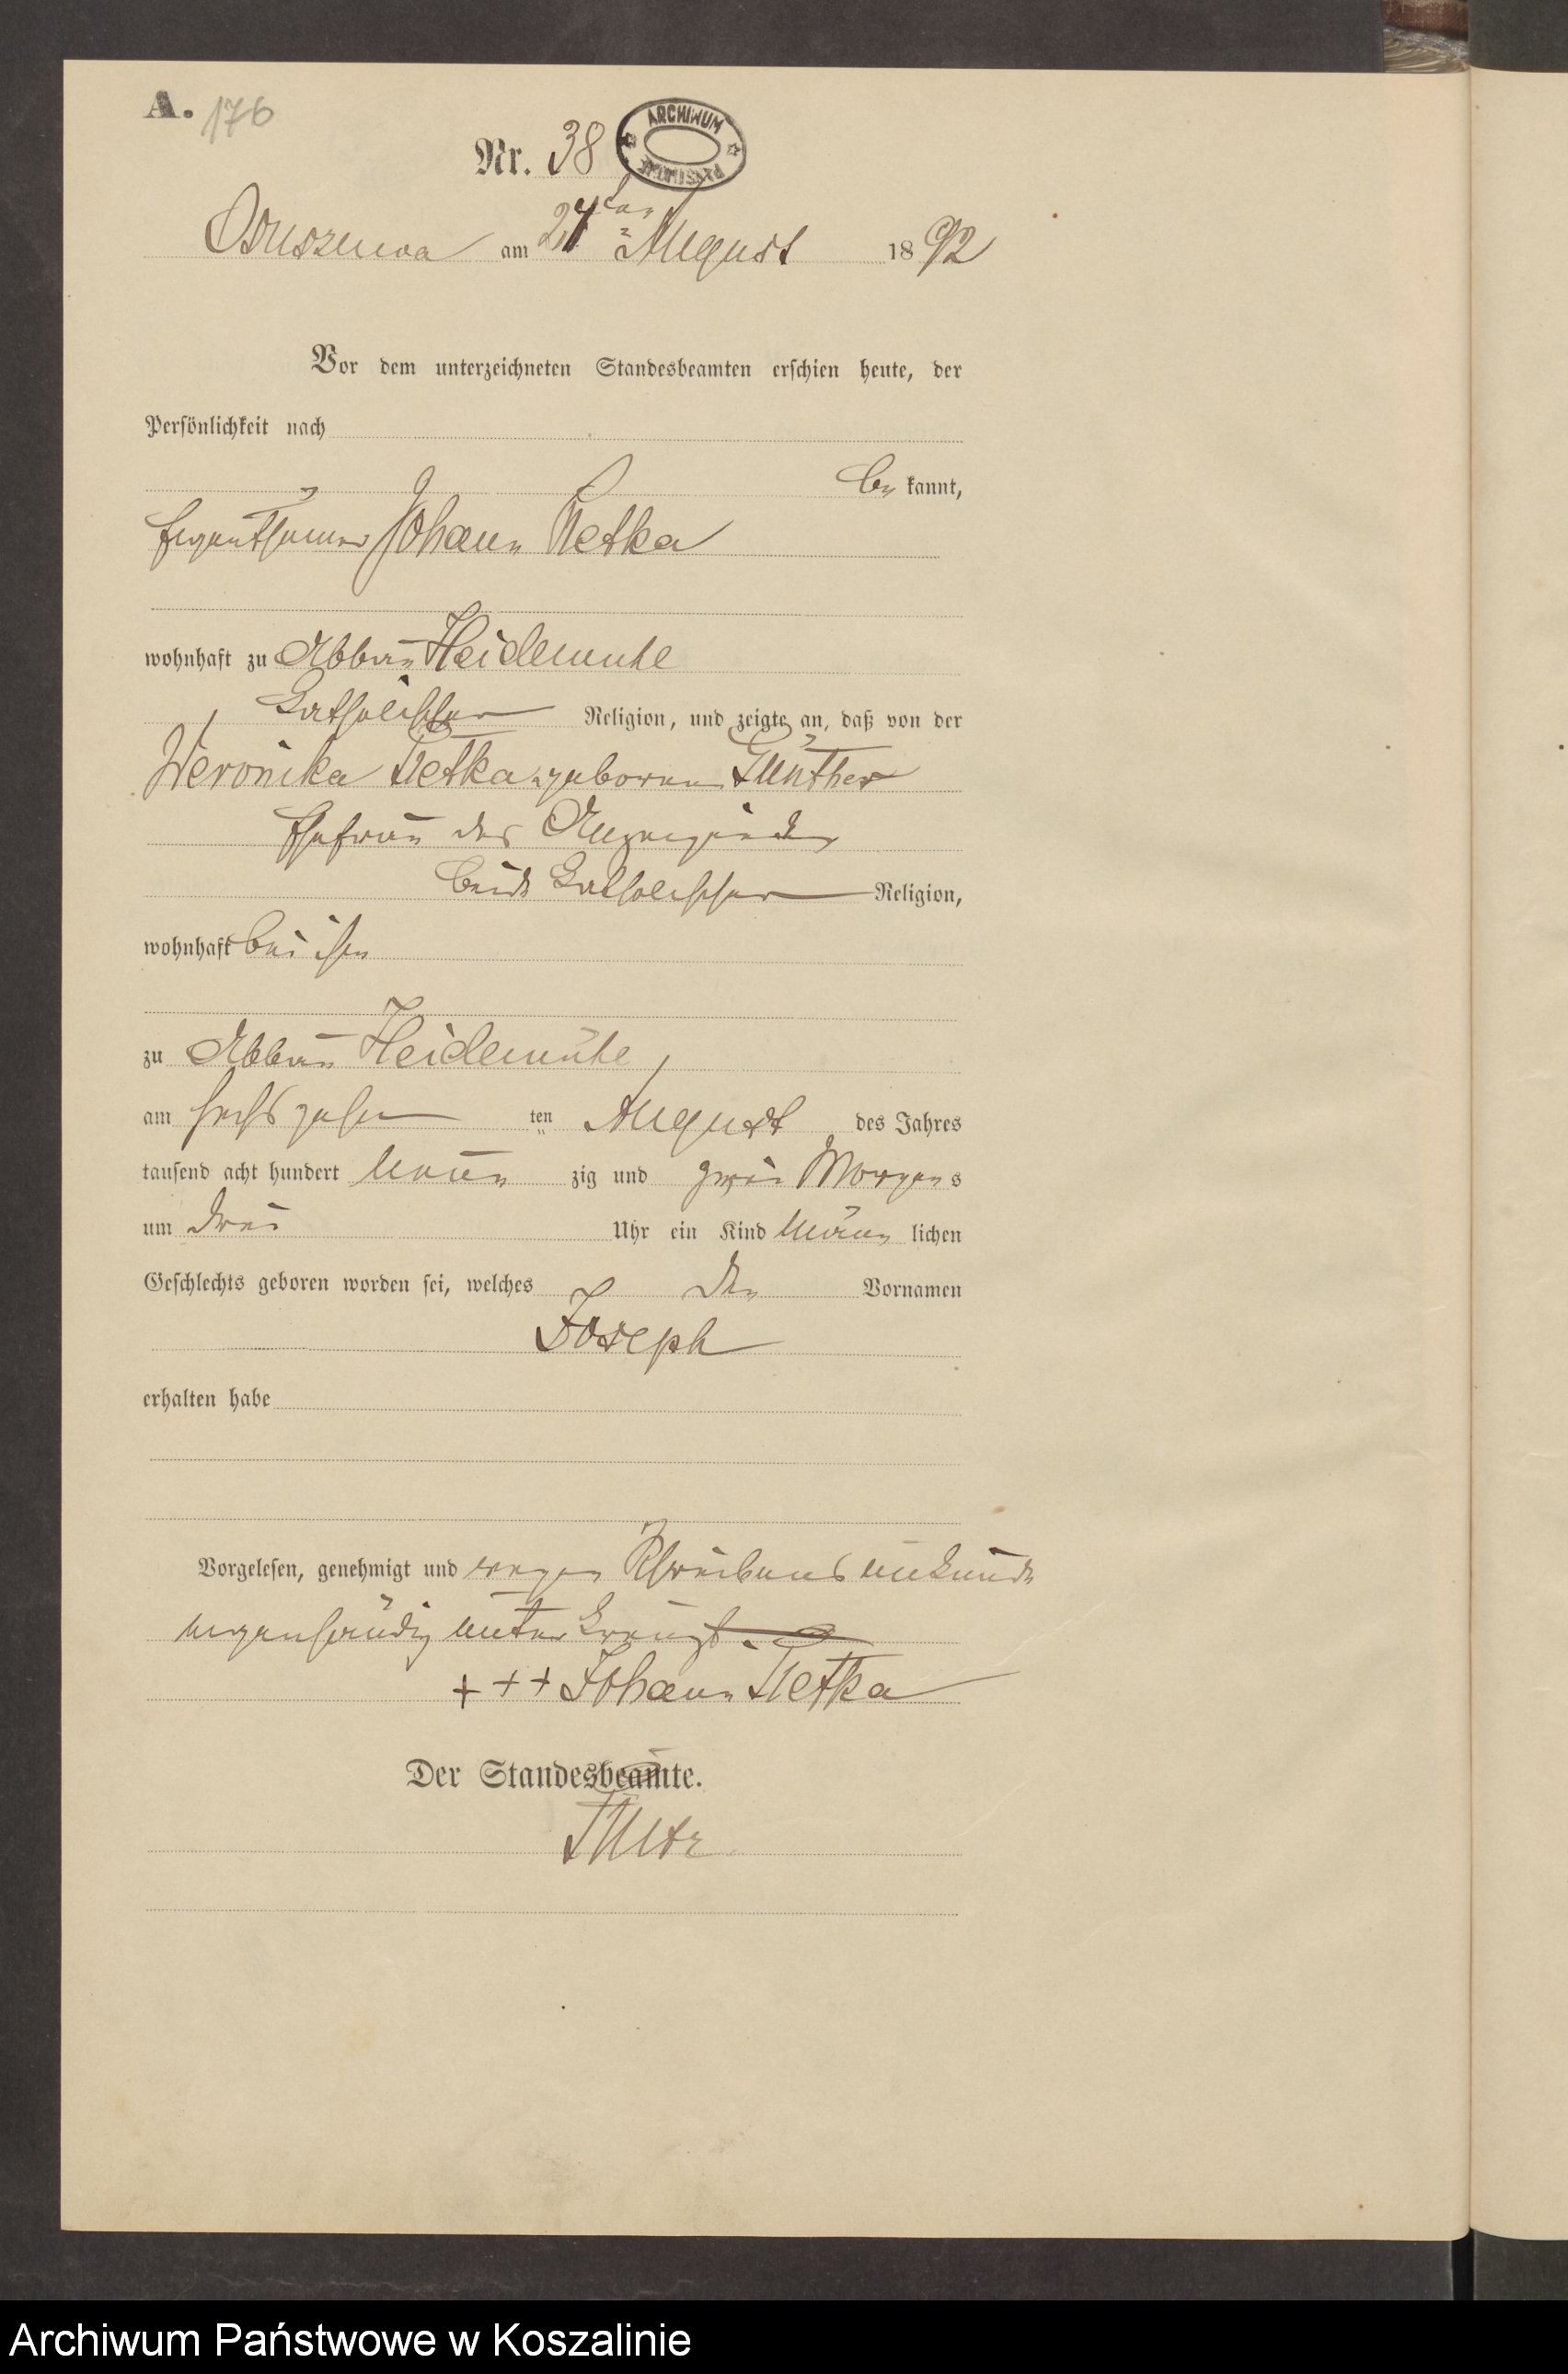 A. 176
Nr. 38
ARCHIWUM PAŃSTWOWE
Ossuszewa am 24ten August 1892
Vor dem unterzeichneten Standesbeamten erschien heute, der
Persönlichkeit nach
be kannt,
Eigenthümer Johann Retka
wohnhaft zu Abbau Heidemule
Catholischer Religion, und zeigte an, daß von der
Weronika Retka geboren Günther
Ehefrau des Anzeigenden
beide Catholischer Religion,
wohnhaft bei ihm
zu Abbau Heidemühe,
am sechszehn ten August des Jahres
tausend acht hundert Neun zig und zwei Morgens
um drei Uhr ein Kind Männ lichen
Geschlechts geboren worden sei, welches den Vornamen
Joseph
erhalten habe
Vorgelesen, genehmigt und wegen Schreibensunkunde
eigenhändig unterkreuzt.
+ + + Johann Retka
Der Standesbeamte.
Archiwum Państwowe w Koszalinie